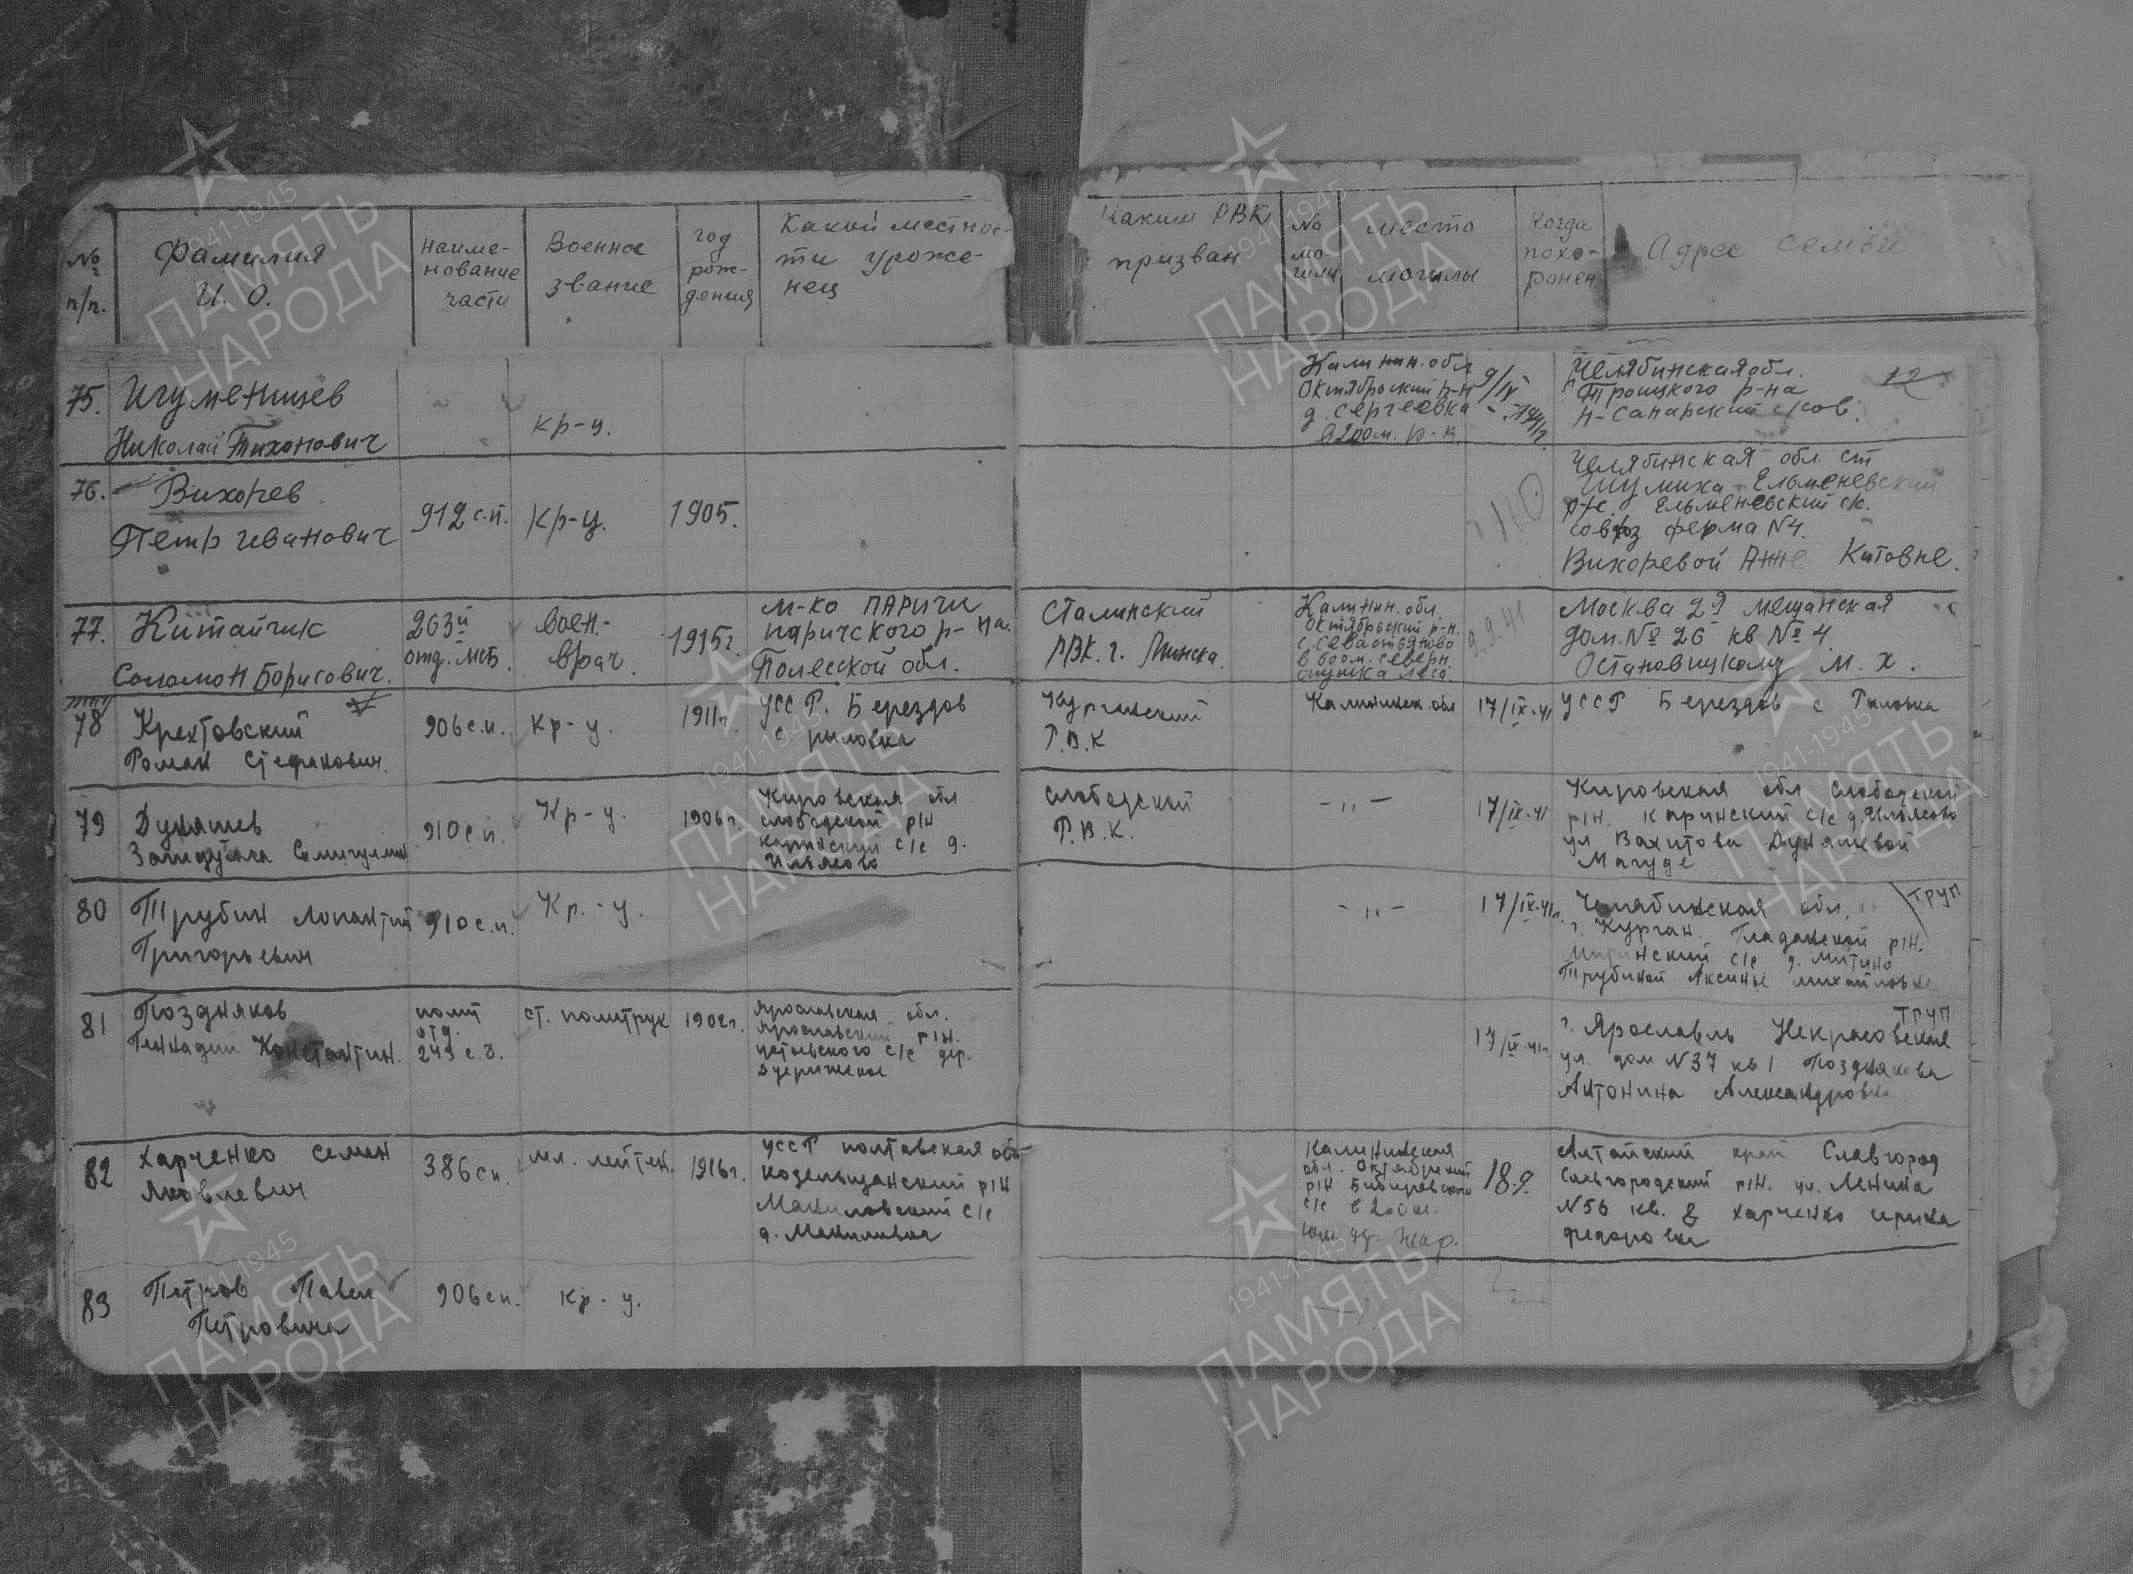 № п/п.
Фамилия И. О.
Наиме-
нование
части
Военное
звание
год
рож-
дения
Какой местнос-
ти уроже-
нец
Каким РВК
призван
№
мо-
гилы
место
могилы
Когда
похо-
ронен
Адрес семьи
75. Игуменищев
Николай Тихонович
кр-ц.
Калинин. обл
Октябрьский р-н
д. Сергеевка
9/IX
1941г.
Челябинская обл.
Троицкого р-на
Н-Санарский с/сов.
12
76. Вихорев
Петр Иванович
912 с.п.
кр-ц.
1905.
Челябинская обл ст
Шумиха Ельменевский
р/с. Ельменевский с/с.
совхоз ферма N4.
Вихоревой Анне Китовне.
77. Китайчик
Соломон Борисович.
263й
отд. МСБ.
Воен.-
врач.
1915г.
м-ко ПАРИЧИ
паричского р-на.
Полесской обл.
Сталинский
РВК. г. Минска.
Калинин. обл.
Октябрьский р-н.
с. Севастьяново
в 600м. северн.
опушка леса
9.9.41
Москва 2я мещанская
дом. № 26 кв № 4
Остановицкому М. Х.
78 Крехтовский
Роман Стефанович.
906 с.п.
кр-ц.
1911г.
УССР. Берездов
с рыловка
Р.В.К
Калининск. обл
17/IX-41
УССР Берездов с Рыловка
79 Дуняшев
910 с п.
Кр-ц.
1906г.
Кировская обл
слободской р/н
Каринский с/с д.
Ильясово
Слободской
Р.В.К.
-"-
17/IX-41
Кировская обл Слободской
р/н. Каринский с/с д. Ильясово
ул Вахитова Дуняшевой
Магуде
80 Трубин
Григорьевич
910 с.п.
Кр.-ц.
-"-
17/IX-41г.
Челябинская обл.
труп
г. Курган.
с/с д. Митино
Трубиной Аксинье михайловне
81 Поздняков
Геннадий Константин.
полит
отд.
249 с.д.
ст. политрук
1902г.
Ярославская обл.
Ярославский р/н.
с/с дер.
17/IX-41г.
труп
г. Ярославль Некрасовская
ул. дом N37 кв 1 Позднякова
Антонина Александровна
82 Харченко Семен
Яковлевич
386 сп.
мл. лейтен.
1916г.
УССР полтавская обл
козельщанский р/н
Махиловский с/с
Калининская
обл. Октябрьский
р/н
с/с в 200м.
18.9.
Алтайский край Славгород
Славгородский р/н. ул. Ленина
N56 кв. 8 Харченко ирина
федоровна
83 Петров Павел
Петровича
906 сп.
кр-ц.
1941-1945
ПАМЯТЬ
НАРОДА